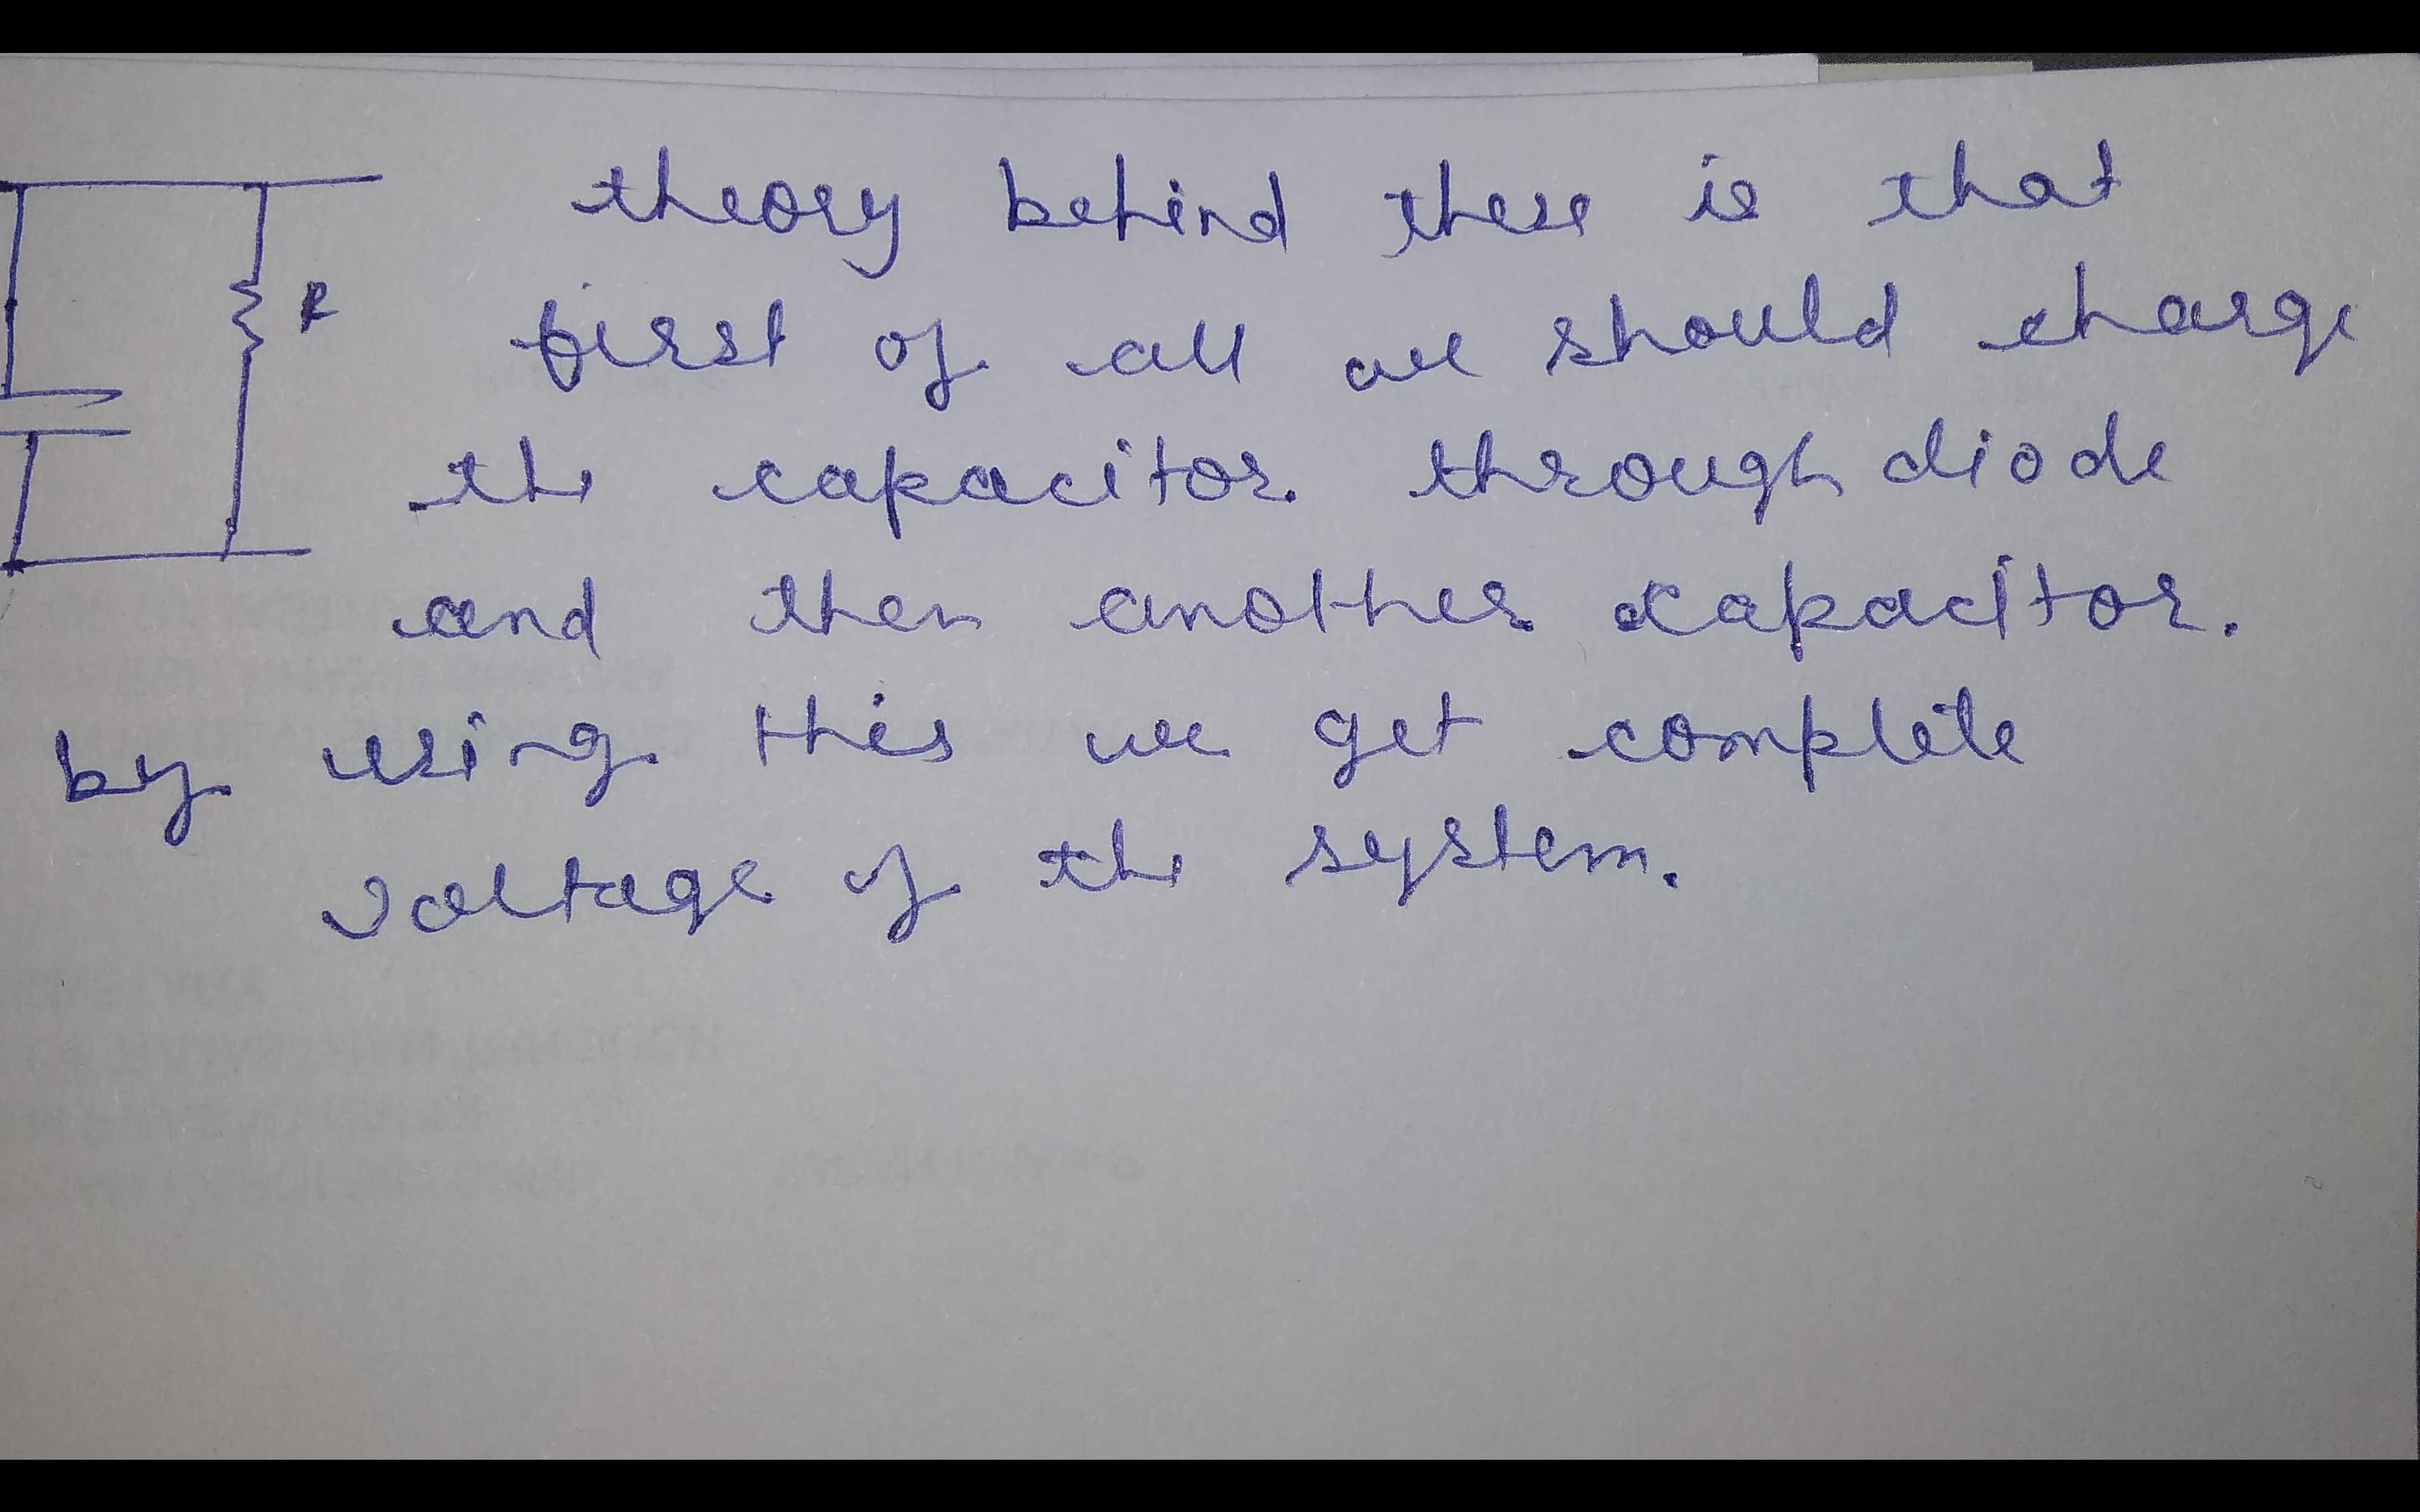 theory behind these is that
R
first of all we should charge
the capacitor through diode
and then another capacitor.
by using this we get complete
voltage of the system.